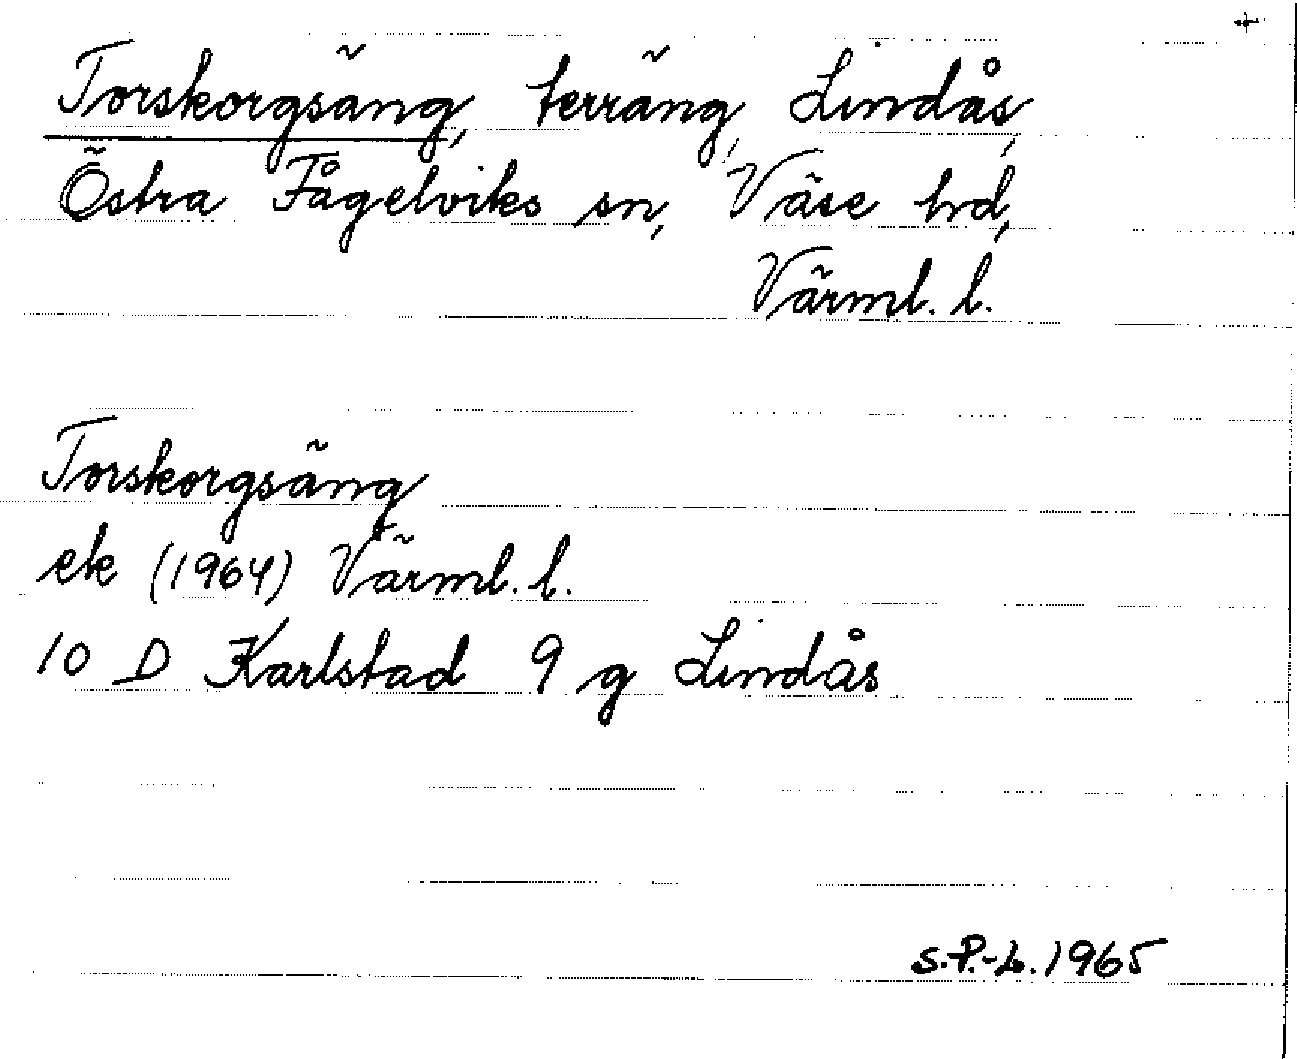 +
Torskorgsäng, terräng, Lindås,
Östra Fågelviks sn, Väse hd,
Värml. l.
Torskorgsäng
ek (1964) Värml. l.
10 D Karlstad 9 g Lindås
S.P.-L. 1965